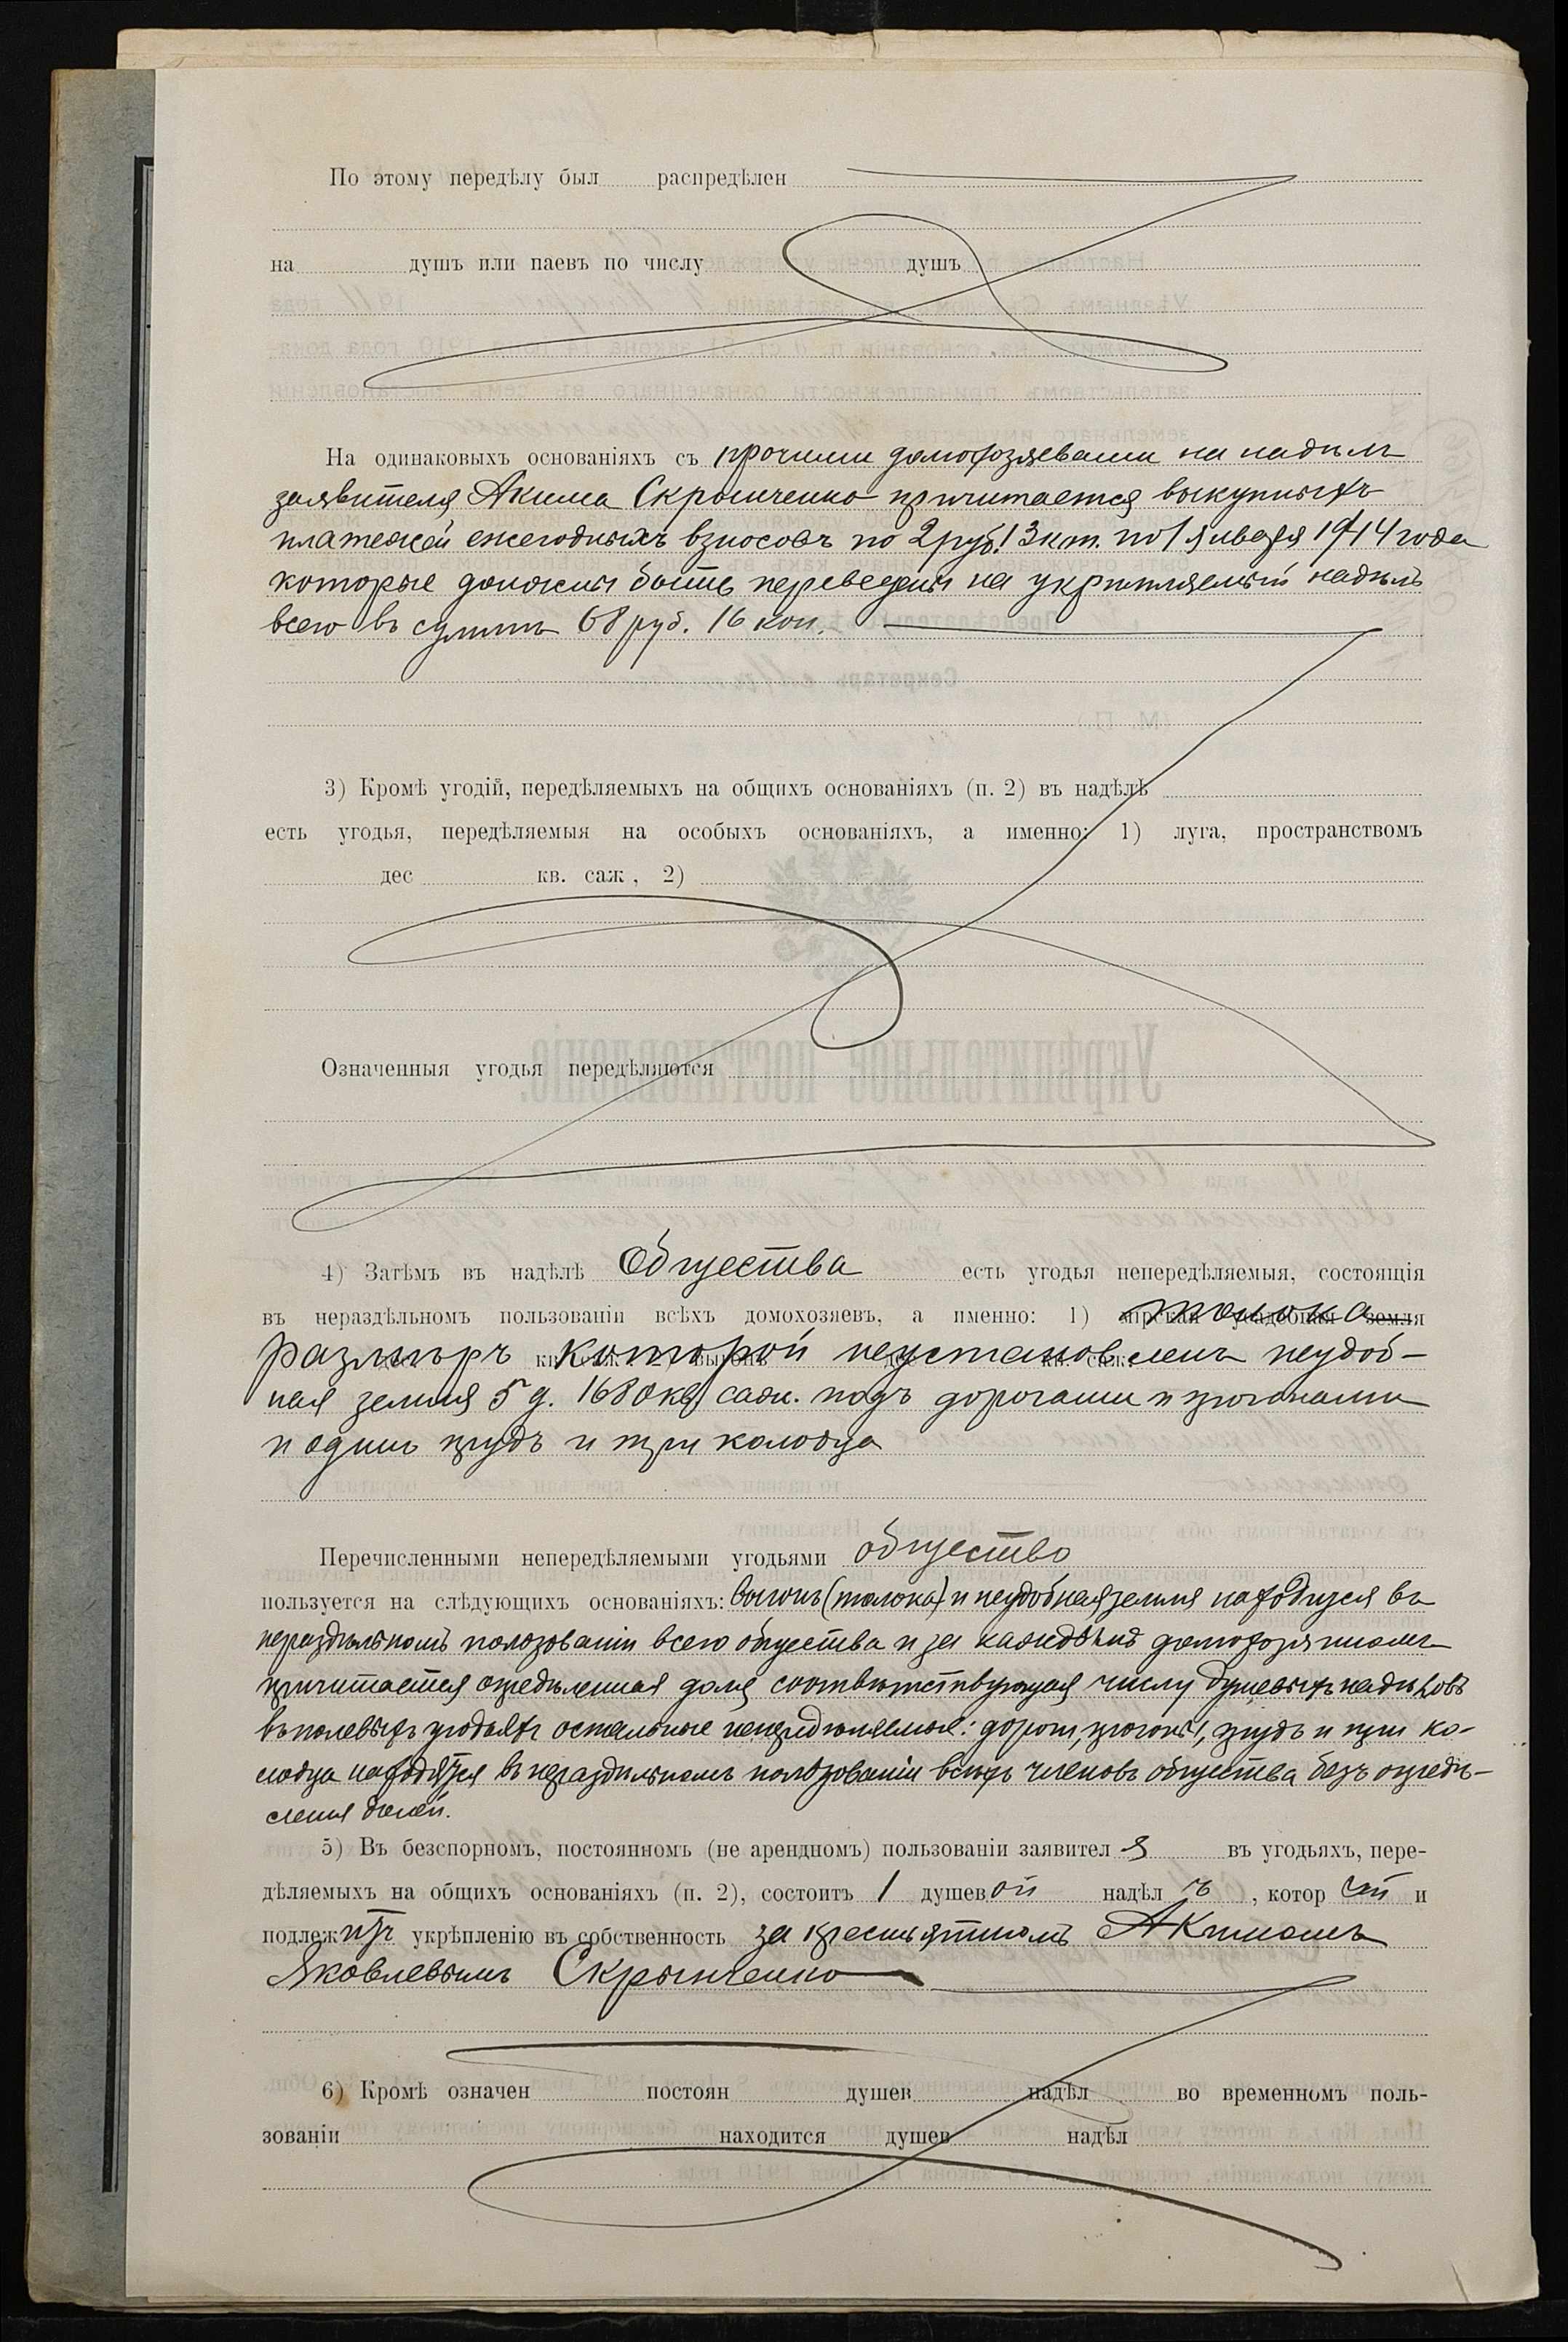 По этому передѣлу был распредѣлен
на душъ или паевъ по числу душъ
На одинаковыхъ основаніяхъ съ прочими домохозяевами на надѣлъ
заявителя Акима Скрынченко причитается выкупныхъ
платежей ежегодныхъ взносовъ по 2 руб. 13 коп. по 1 января 1914 года
которые должны быть переведены на укрѣпляемый надѣлъ
всего въ суммѣ 68 руб. 16 коп.
3) Кромѣ угодій, передѣляемыхъ на общихъ основаніяхъ (п. 2) въ надѣлѣ
есть угодья, передѣляемыя на особыхъ основаніяхъ, а именно: 1) луга, пространствомъ
дес кв. саж, 2)
Означенныя угодья передѣляются
4) Затѣмъ въ надѣлѣ Общества есть угодья непередѣляемыя, состоящія
въ нераздѣльномъ пользованіи всѣхъ домохозяевъ, а именно: 1) мірская усадебная земля толока
размѣръ которой неустановленъ неудоб-
ная земля 5 д. 1680 кв. саж. подъ дорогами и прогонами
и одинъ прудъ и три колодца
Перечисленными непередѣляемыми угодьями общество
пользуется на слѣдующихъ основаніяхъ: выгонъ (толока) и неудобная земля находится въ
нераздѣльномъ пользованіи всего общества и за каждымъ домохозяиномъ
причитается опредѣленная доля соотвѣтствующая числу душевыхъ надѣловъ
въ полевыхъ угодьяхъ остальные непередѣляемыя: дороги, прогоны, прудъ и три ко-
лодца находятся въ нераздѣльномъ пользованіи всѣхъ членовъ общества безъ опредѣ-
ленія долей.
5) Въ безспорномъ, постоянномъ (не арендномъ) пользованіи заявителя въ угодьяхъ, пере-
дѣляемыхъ на общихъ основаніяхъ (п. 2), состоитъ 1 душевой надѣлъ, который и
подлежитъ укрѣпленію въ собственность за крестьяниномъ Акимомъ
Яковлевымъ Скрынченко
6) Кромѣ означен постоян душев надѣл во временномъ поль-
зованіи находится душев надѣл